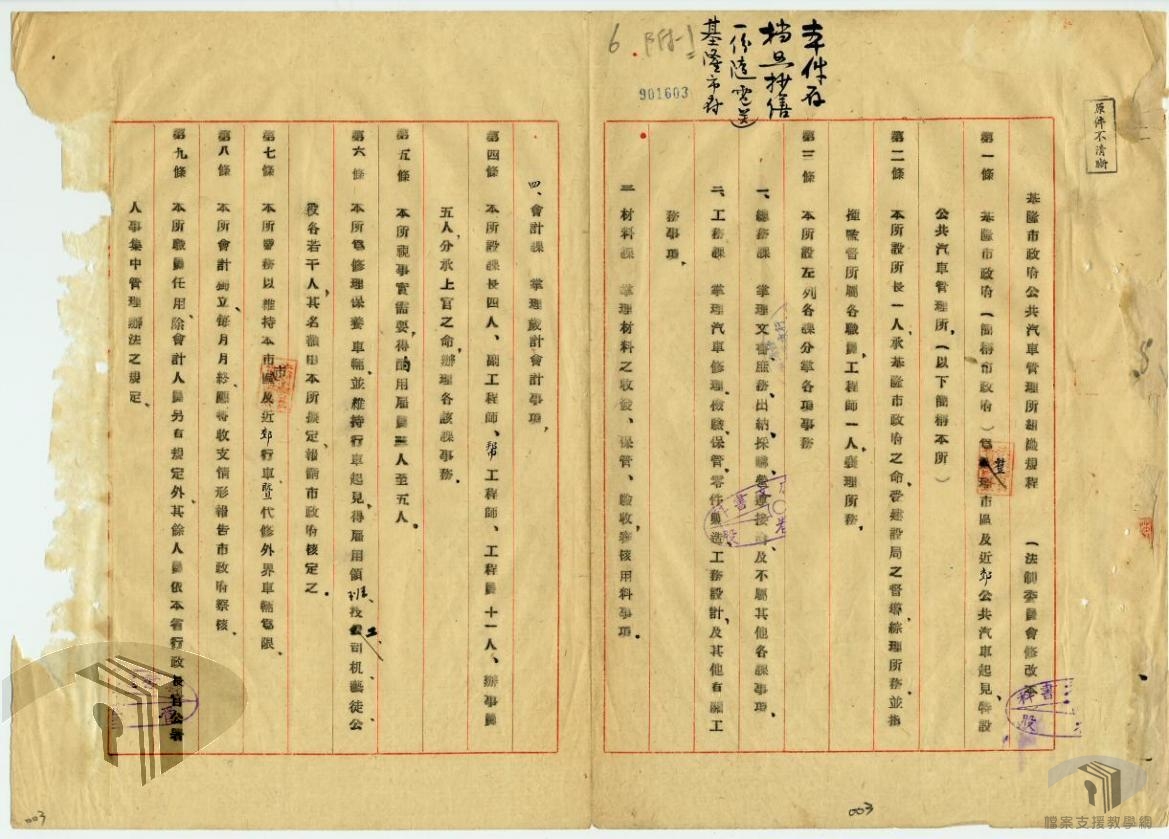 原件不清晰
本件存
檔另抄繕
一份隨電送
基隆市府
6 附-1
901603
基隆市政府公共汽車管理所組織規程 (法制委員會修改
第一條 基隆市政府(簡稱市政府)為整理市區及近郊公共汽車起見、特設
公共汽車管理所、(以下簡稱本所)
第二條 本所設所長一人、承基隆市政府之命、受建設局之督導綜理所務並指
揮監督所屬各職員、工程師一人襄理所務、
第三條 本所設左列各課分掌各項事務
一、總務課 掌理文書、庶務、出納、採購、營運、接洽、及不屬其他各課事項、
二、工務課 掌理汽車修理、檢驗、保管、零件製造、工務設計、及其他有關工
務事項、
三 材料課 掌理材料之收發、保管、驗收、審核用料事項、
四、會計課 掌理歲計會計事項、
第四條 本所設課長四人、副工程師、幫工程師、工程員十一人、辦事員
五人、分承上官之命、辦理各該課事務、
第五條 本所視事實需要、得酌用雇員三人至五人。
第六條 本所為修理保養車輛、並維持行車起見、得雇用領班、技工、司机藝徒公
役各若干人、其名額由本所擬定、報請市政府核定之。
第七條 本所業務以維持本市區及近郊行車暨代修外界車輛為限、
第八條 本所會計獨立、每月月終、應將收支情形報告市政府察核、
第九條 本所職員任用、除會計人員另有規定外、其餘人員依本省行政長官公署
人事集中管理辦法之規定、
003
003
檔案支援教學網